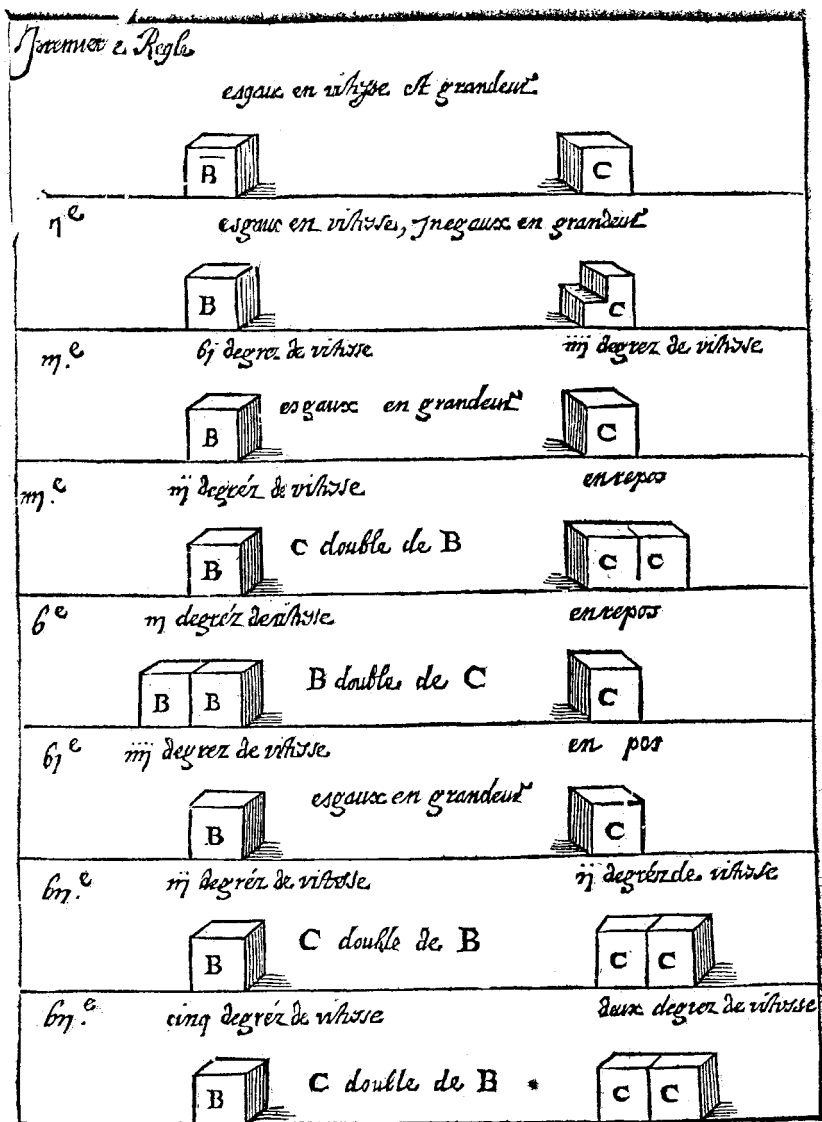 Premiere Regle
esgaux en vitesse et grandeur
B C
ije esgaux en vitesse, Jnegaux en grandeur
B C
iij.e 6j degrez de vitesse iiij degrez de vitesse
esgaux en grandeur
B C
iiij.e iij degréz de vitesse en repos
C double de B
B C C
6e iij degréz de vitesse en repos
B double de C
B B C
6je iiij degrez de vitesse en pos
esgaux en grandeur
B C
6ij.e iij degréz de vitesse ij degréz de vitesse
C double de B
B C C
6ij.e cinq degréz de vitesse deux degrez de vitesse
C double de B
B C C